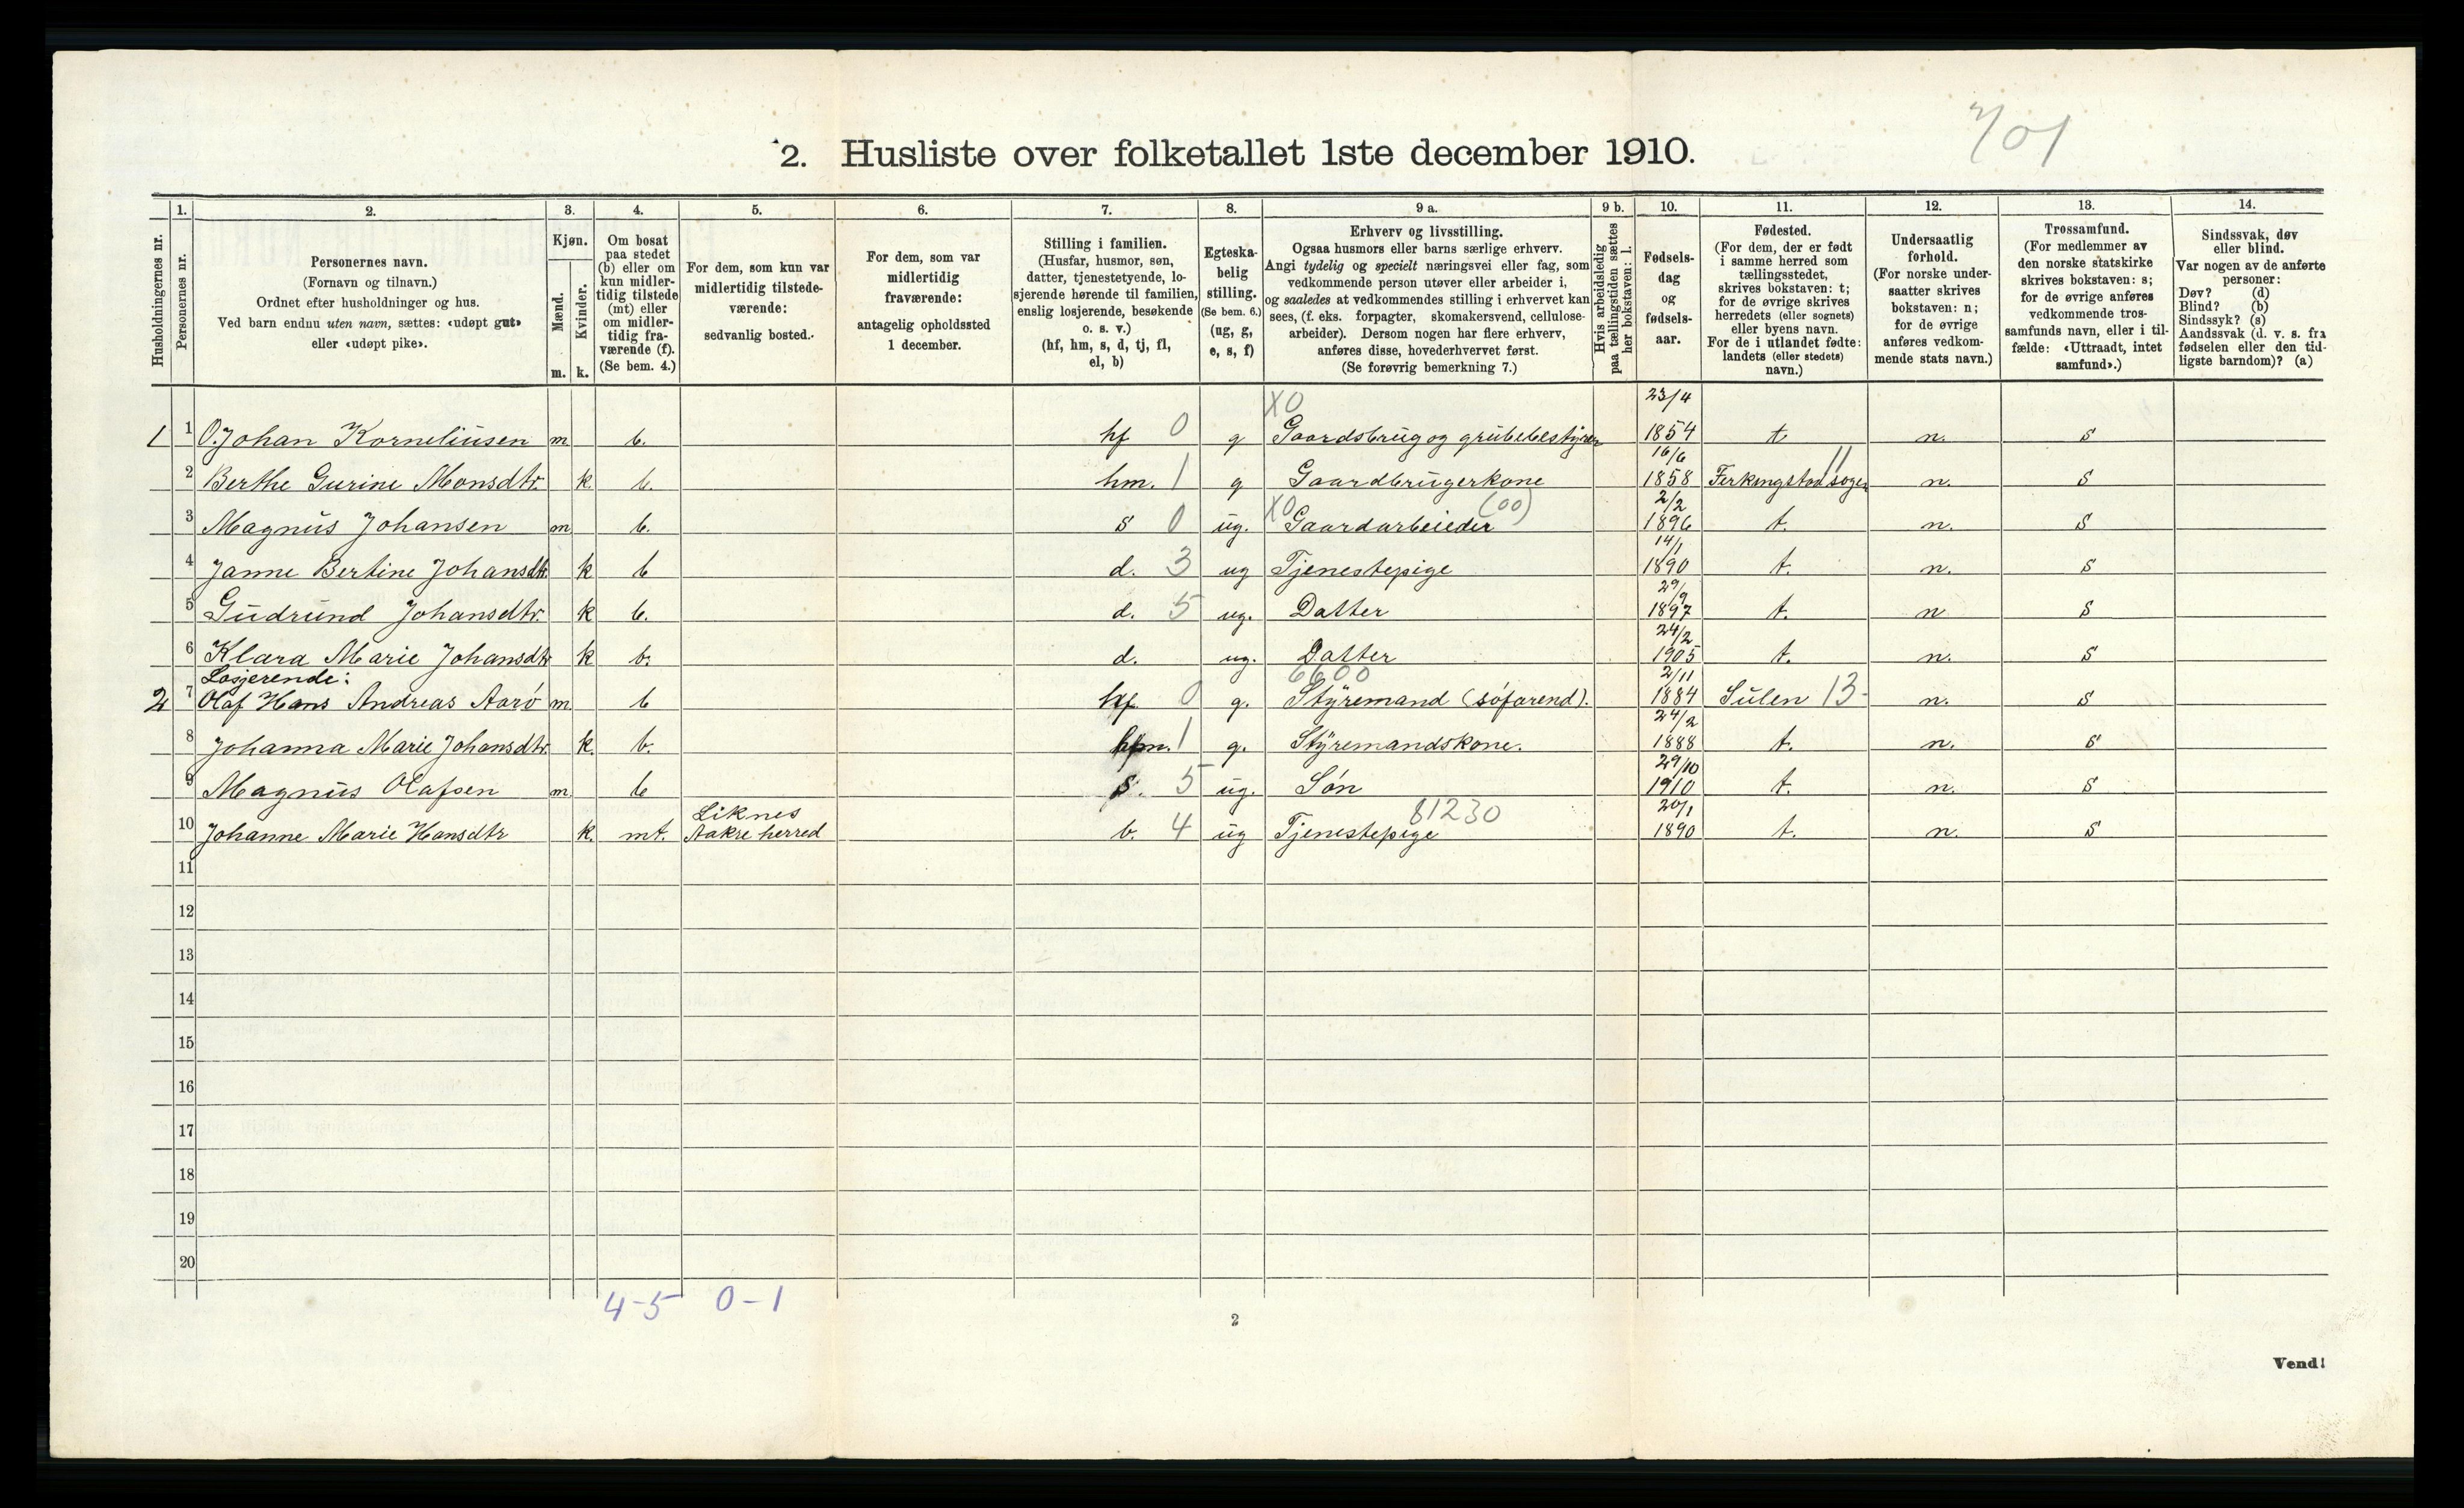 701
2. Husliste over folketallet 1ste december 1910.
Husholdningernes nr.
1.
Personernes nr.
2.
Personernes navn.
(Fornavn og tilnavn.)
Ordnet efter husholdninger og hus.
Ved barn endnu uten navn, sættes: «udøpt gut»
eller «udøpt pike».
3.
Kjøn.
Mænd.
Kvinder.
m. k.
4.
Om bosat
paa stedet
(b) eller om
kun midler-
tidig tilstede
(mt) eller
om midler-
tidig fra-
værende (f).
(Se bem. 4.)
5.
For dem, som kun var
midlertidig tilstede-
værende:
sedvanlig bosted.
6.
For dem, som var
midlertidig
fraværende:
antagelig opholdssted
1 december.
7.
Stilling i familien.
(Husfar, husmor, søn,
datter, tjenestetyende, lo-
sjerende hørende til familien,
enslig losjerende, besøkende
o. s. v.)
(hf, hm, s, d, tj, fl,
el, b)
8.
Egteska-
belig
stilling.
(Se bem. 6.)
(ug, g,
e, s, f)
9 a.
Erhverv og livsstilling.
Ogsaa husmors eller barns særlige erhverv.
Angi tydelig og specielt næringsvei eller fag, som
vedkommende person utøver eller arbeider i,
og saaledes at vedkommendes stilling i erhvervet kan
sees, (f. eks. forpagter, skomakersvend, cellulose-
arbeider). Dersom nogen har flere erhverv,
anføres disse, hovederhvervet først.
(Se forøvrig bemerkning 7.)
9 b.
Hvis arbeidsledig
paa tællingstiden sættes
her bokstaven: l.
10.
Fødsels-
dag
og
fødsels-
aar.
11.
Fødested.
(For dem, der er født
i samme herred som
tællingsstedet,
skrives bokstaven: t;
for de øvrige skrives
herredets (eller sognets)
eller byens navn.
For de i utlandet fødte:
landets (eller stedets)
navn.)
12.
Undersaatlig
forhold.
(For norske under-
saatter skrives
bokstaven: n;
for de øvrige
anføres vedkom-
mende stats navn.)
13.
Trossamfund.
(For medlemmer av
den norske statskirke
skrives bokstaven: s;
for de øvrige anføres
vedkommende tros-
samfunds navn, eller i til-
fælde: «Uttraadt, intet
samfund».)
14.
Sindssvak, døv
eller blind.
Var nogen av de anførte
personer:
Døv? (d)
Blind? (b)
Sindssyk? (s)
Aandssvak (d. v. s. fra
fødselen eller den tid-
ligste barndom)? (a)
X0 23/4
1 1 O. Johan Korneliusen m b. hf 0 g Gaardsbrug og grubebestyrer 1854 t n. s
16/6 11
2 Berthe Gurine Monsdtr. k b. hm. 1 g Gaardbrugerkone 1858 Ferkingstad sogn n. s
X0 (00) 2/2
3 Magnus Johansen m b. s 0 ug. Gaardarbeieder 1896 t. n. s
14/1
4 Janne Bertine Johansdtr. k b d. 3 ug Tjenestepige 1890 t. n. s
29/9
5 Gudrund Johansdtr. k b. d. 5 ug. Datter 1897 t. n s
24/2
6 Klara Marie Johansdtr k b. d. ug. Datter 1905 t. n. s
Losjerende: 6600 2/11
2 7 Olaf Hans Andreas Aarö m b hf 0 g. Styremand (söfarend). 1884 Sulen 13 n. s
24/2
8 Johanna Marie Johansdtr. k. b. hm. 1 g. Styremandskone. 1888 t. n. s
29/10
9 Magnus Olafsen m. b s. 5 ug. Sön 1910 t. n. s
Liknes 81230 20/1
10 Johanne Marie Hansdtr k. mt. Aakre herred b. 4 ug Tjenestepige 1890 t. n. s
11
12
13
14
15
16
17
18
19
20
4-5 0-1
2
Vend!